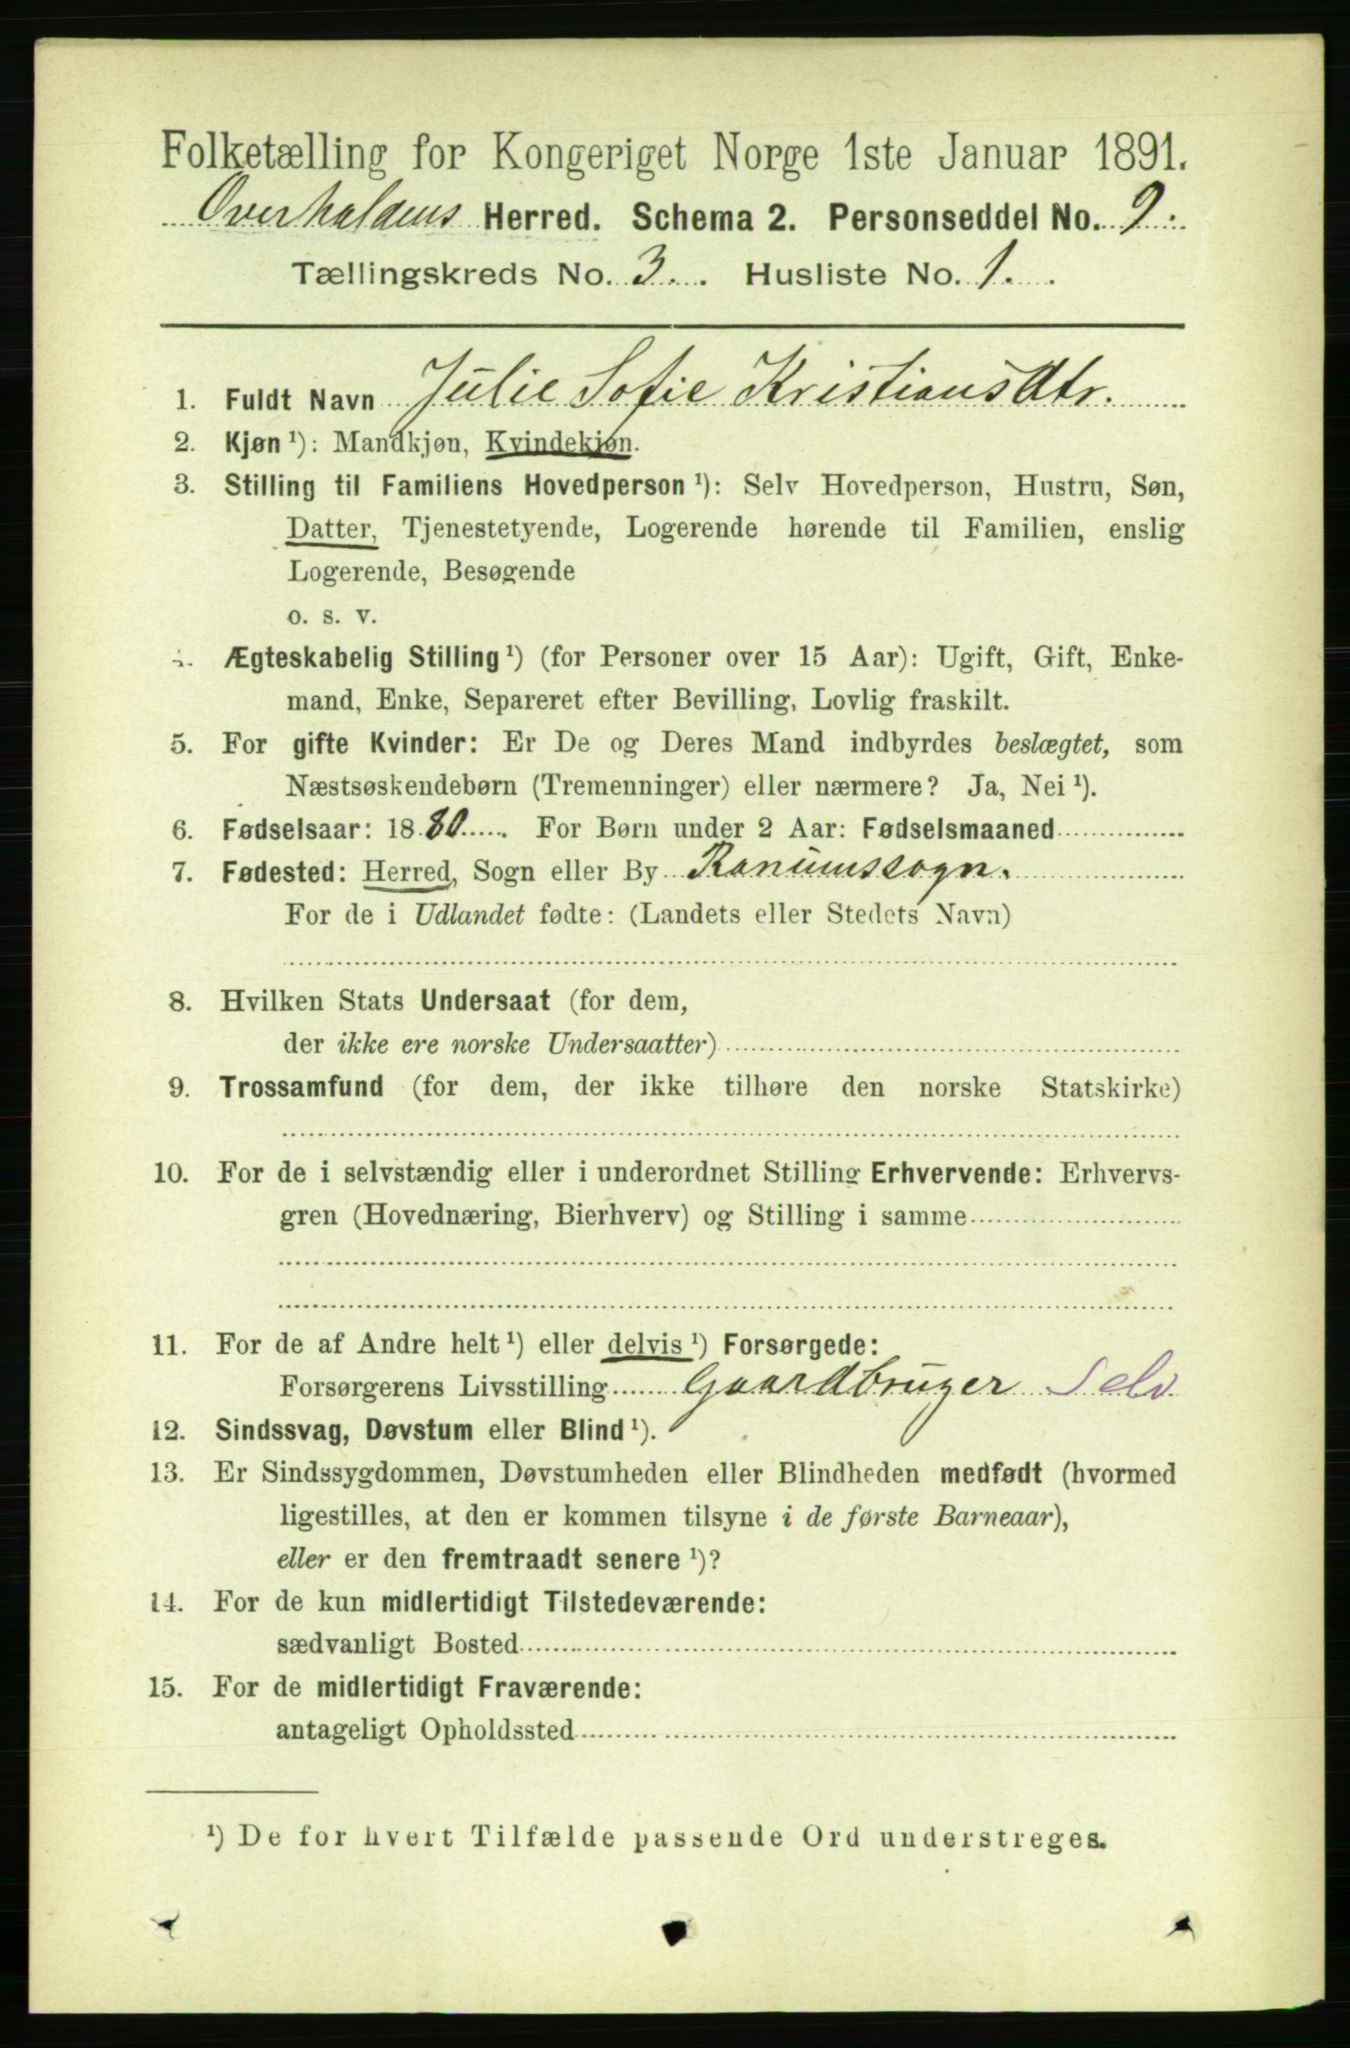 Folketælling for Kongeriget Norge 1ste Januar 1891.
Overhaldens Herred. Schema 2. Personseddel No. 9.
Tællingskreds No. 3. Husliste No. 1.
1. Fuldt Navn Julie Sofie Kristiansdtr.
2. Kjøn ¹): Mandkjøn, Kvindekjøn.
3. Stilling til Familiens Hovedperson ¹): Selv Hovedperson, Hustru, Søn,
Datter, Tjenestetyende, Logerende hørende til Familien, enslig
Logerende, Besøgende
o. s. v.
4. Ægteskabelig Stilling ¹) (for Personer over 15 Aar): Ugift, Gift, Enke-
mand, Enke, Separeret efter Bevilling, Lovlig fraskilt.
5. For gifte Kvinder: Er De og Deres Mand indbyrdes beslægtet, som
Næstsøskendebørn (Tremenninger) eller nærmere? Ja, Nei ¹).
6. Fødselsaar: 1880 For Børn under 2 Aar: Fødselsmaaned
7. Fødested: Herred, Sogn eller By Ranumssogn.
For de i Udlandet fødte: (Landets eller Stedets Navn)
8. Hvilken Stats Undersaat (for dem,
der ikke ere norske Undersaatter)
9. Trossamfund (for dem, der ikke tilhøre den norske Statskirke)
10. For de i selvstændig eller i underordnet Stilling Erhvervende: Erhvervs-
gren (Hovednæring, Bierhverv) og Stilling i samme
11. For de af Andre helt ¹) eller delvis ¹) Forsørgede:
Forsørgerens Livsstilling Gaardbruger Selv
12. Sindssvag, Døvstum eller Blind ¹).
13. Er Sindssygdommen, Døvstumheden eller Blindheden medfødt (hvormed
ligestilles, at den er kommen tilsyne i de første Barneaar),
eller er den fremtraadt senere ¹)?
14. For de kun midlertidigt Tilstedeværende:
sædvanligt Bosted
15. For de midlertidigt Fraværende:
antageligt Opholdssted
¹) De for hvert Tilfælde passende Ord understreges.